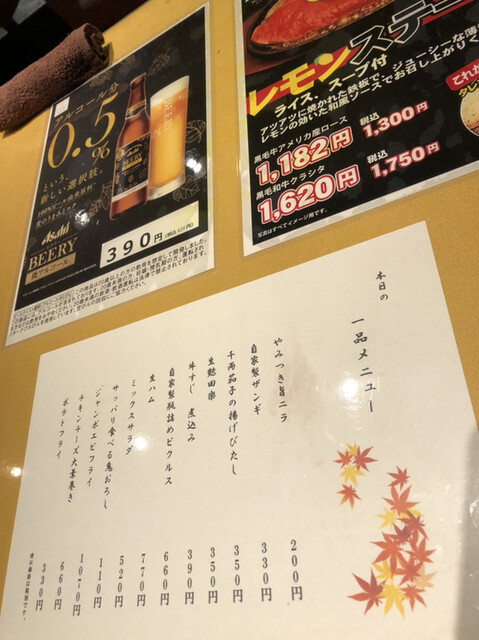 アルコール分
0.5%
という、
新しい選択肢。
Asahi
BEERY
微アルコール
390円(税込429円)
レモンステ
ライス、スープ付
アツアツに焼かれた鉄板で、ジューシーな薄
レモンの効いた和風ソースでお召し上がりく
黒毛牛アメリカ産ロース 税込
1,182円 1,300円
黒毛和牛クラシタ 税込
1,620円 1,750円
写真はすべてイメージ図です。
これ
タレ
本日の
一品メニュー
やみつき旨ニラ 200円
自家製ザンギ 330円
千両茄子の揚げびたし 350円
生麩田楽 350円
牛すじ 煮込み 390円
自家製瓶詰めピクルス 660円
生ハム 770円
ミックスサラダ 520円
サッパリ食べる鬼おろし 110円
ジャンボエビフライ 1070円
チキンチーズ大葉巻き 660円
ポテトフライ 330円
表示価格は税抜です。